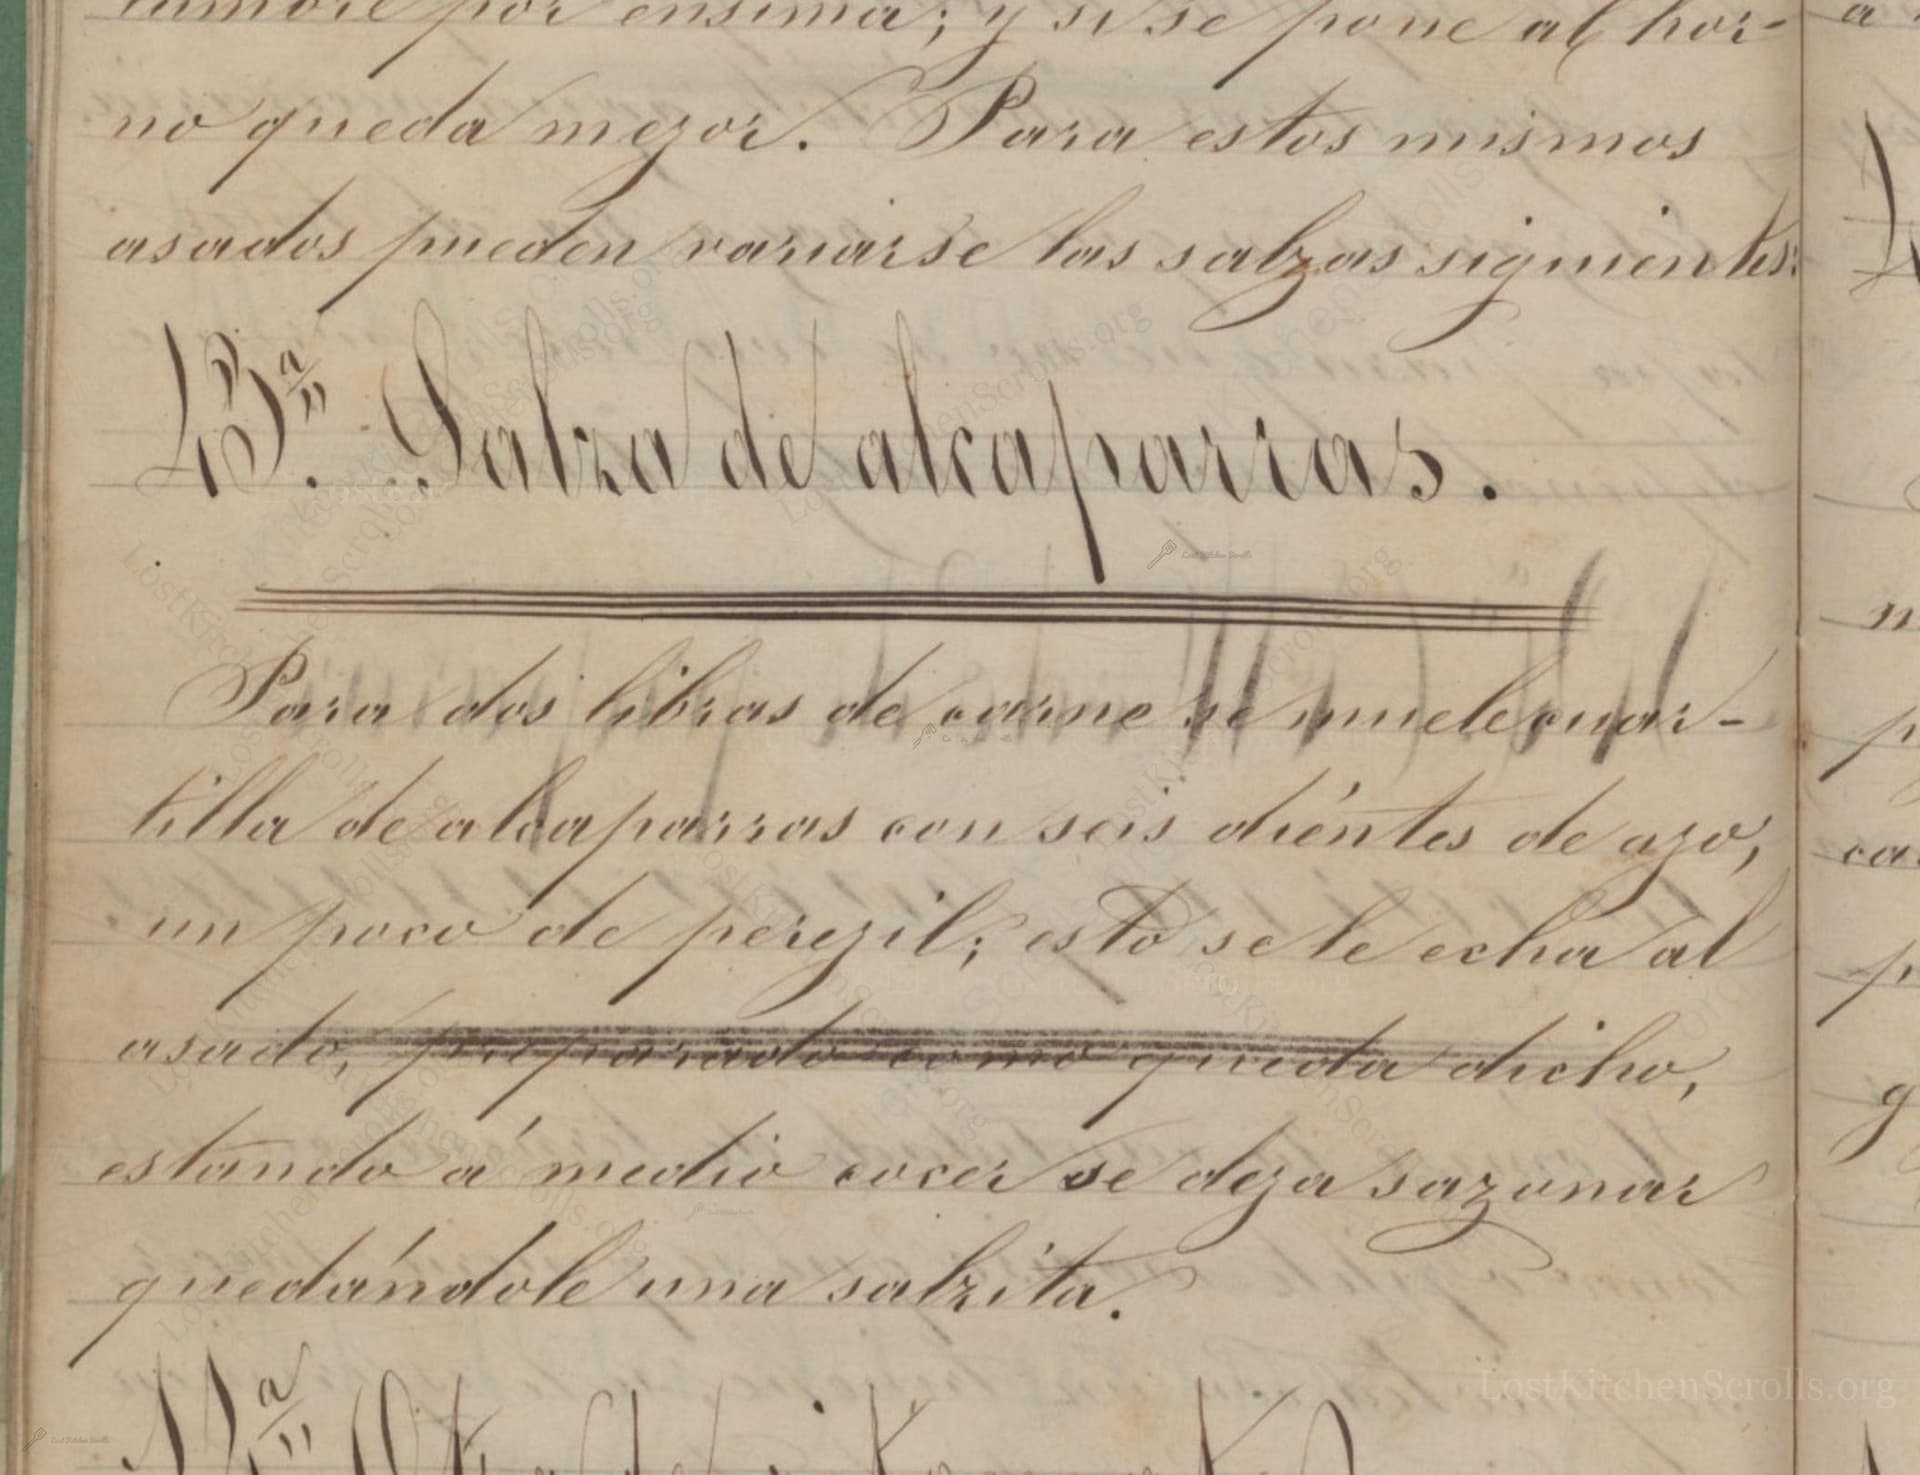 lumbre por ensima; y si se pone al hor-
no queda mejor. Para estos mismos
asados pueden variarse las salzas siguientes:
43ª. Salza de alcaparras.
Para dos libras de carne se muele cuar-
tilla de alcaparras con seis diéntes de ajo,
un poco de peregil; esto se le echa al
asado, preparado como queda dicho,
estando á medio cocer se deja sazonar
quedándole una salzita.
LostKitchenScrolls.org